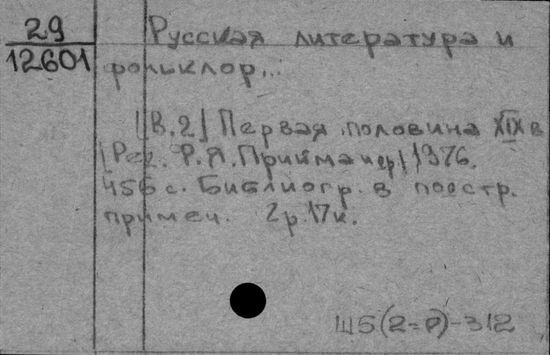 29
12601
Русская литература и
фольклор...
[В.2] Первая половина XIX в
[Ред. Ф.Я.Прийма и др] 1976.
456 с. Библиогр. в постр.
примеч. 2р.17к.
Ш5(2=Р)-312